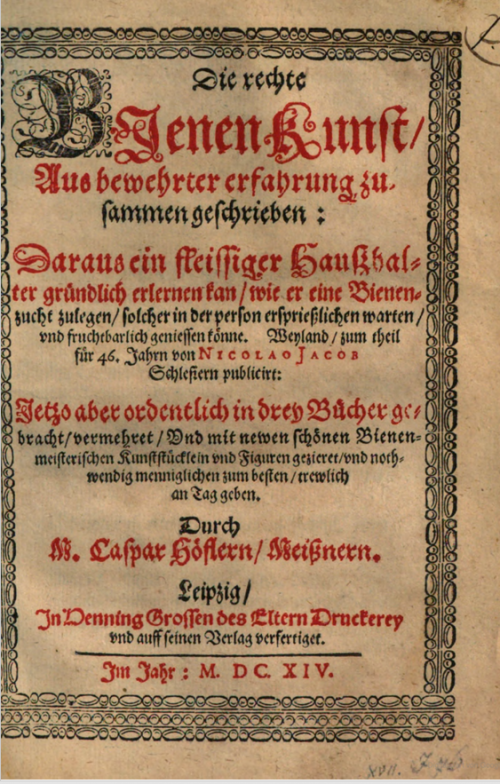 Die rechte
BJenen Kunst/
Aus bewehrter erfahrung zu-
sammen geschrieben:
Daraus ein fleissiger Haußhal-
ter gründlich erlernen kan/ wie er eine Bienen-
zucht zulegen/ solcher in der person ersprießlichen warten/
vnd fruchtbarlich geniessen könne. Weyland/ zum theil
für 46. Jahrn von NICOLAO JACOB
Schlesiern publicirt:
Jetzo aber ordentlich in drey Bücher ge-
bracht/ vermehret/ Vnd mit newen schönen Bienen-
meisterischen Kunststücklein vnd Figuren gezieret/ vnd noth-
wendig menniglichen zum besten/ trewlich
an Tag geben.
Durch
M. Caspar Höflern/ Meißnern.
Leipzig/
In Henning Grossen des Eltern Druckerey
vnd auff seinen Verlag verfertiget.
Im Jahr: M. DC. XIV.